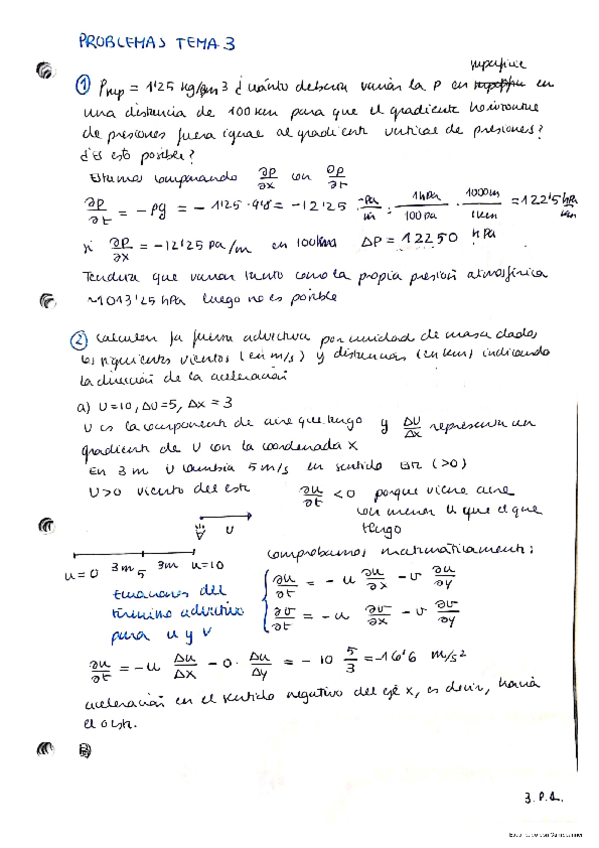 PROBLEMAS TEMA 3
superficie
① ρsup = 1'25 kg/m3 ¿cuánto debería variar la P en en
una distancia de 100 km para que el gradiente horizontal
de presiones fuera igual al gradiente vertical de presiones?
¿Es esto posible?
Estamos comparando ∂p/∂x con ∂p/∂z
∂p/∂z = -ρg = -1'25 · 9'8 = -12'25 Pa/m · 1hPa/100Pa · 1000m/1km = 122'5 hPa/km
si ∂p/∂x = -12'25 Pa/m en 100km ΔP = 12250 hPa
Tendría que variar tanto como la propia presión atmosférica
~1013'25 hPa luego no es posible
② Calcular la fuerza advectiva por unidad de masa dados
los siguientes vientos (en m/s) y distancias (en km) indicando
la dirección de la aceleración
a) U=10, ΔU=5, Δx = 3
U es la componente de aire que tengo y ΔU/Δx representa un
gradiente de U con la coordenada X
En 3 m U cambia 5 m/s en sentido (>0)
U>0 viento del este ∂u/∂t < 0 porque viene aire
con menor U que el que
tengo
U
u=0 3m 5 3m u=10
comprobamos matemáticamente:
Ecuaciones del
término advectivo
para u y v
∂u/∂t = -u ∂u/∂x - v ∂u/∂y
∂v/∂t = -u ∂v/∂x - v ∂v/∂y
∂u/∂t = -u Δu/Δx - 0 · Δu/Δy = -10 5/3 = -16'6 m/s²
aceleración en el sentido negativo del eje x, es decir, hacia
el oeste.
3. P.1.